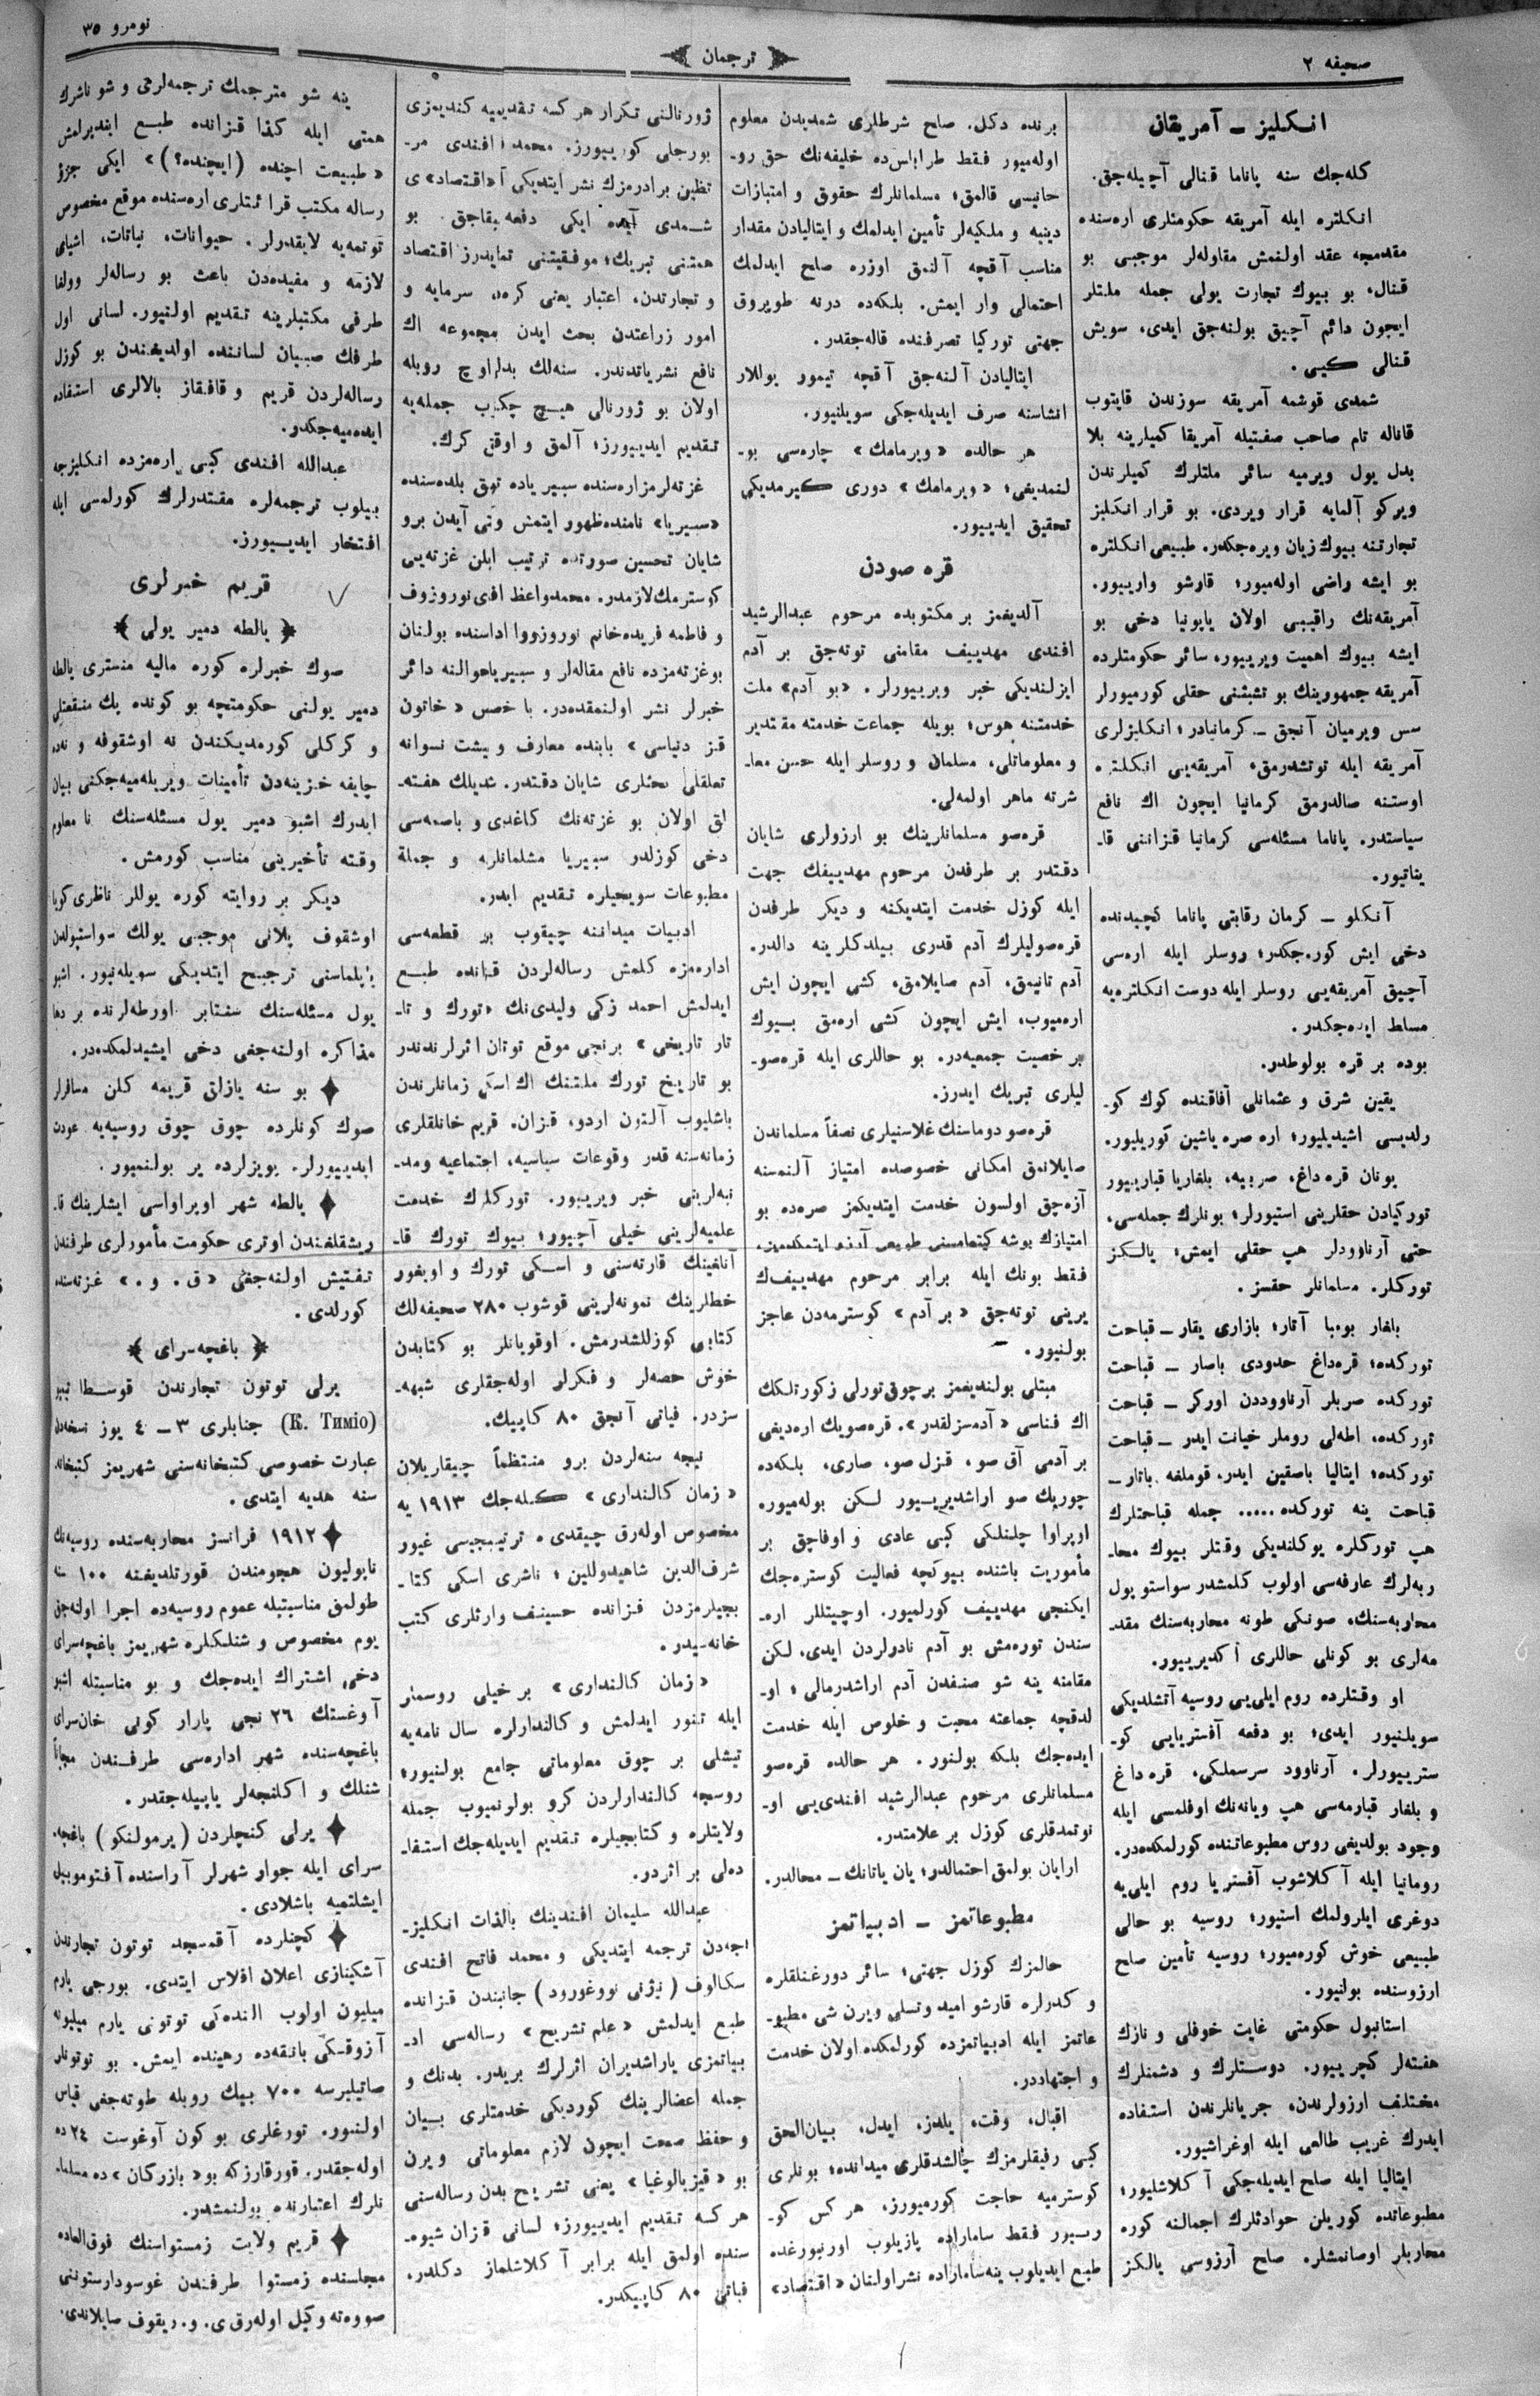 صحیفه ٢
ترجمان
نومرو ٣٥
انكلیز ــ آمریقان
كله‌جك سنه پاناما قنالی آچیله‌جق.
انكلتره ایله آمریقه حكومتلری اره‌سنده
مقدمجه عقد اولنمش مقاوله‌لر موجبی بو
قنال، بو بیوك تجارت یولی جمله ملتلر
ایچون دائم آچیق بولنه‌جق ایدی، سویش
قنالی كبی.
شمدی قوشمه آمریقه سوزندن قایتوب
قاناله تام صاحب صفتیله آمریقا كمیلرینه بلا
بدل یول ویرمیه سائر ملتلرك كمیلرندن
ویركو آلمایه قرار ویردی. بو قرار انكلیز
تجارتنه بیوك زیان ویره‌جكدر. طبیعی انكلتره
بو ایشه راضی اوله‌میور؛ قارشو واریبور.
آمریقه‌نك راقیبی اولان یاپونیا دخی بو
ایشه بیوك اهمیت ویریبور، سائر حكومتلرده
آمریقه جمهورینك بو تشبثنی حقلی كورمیورلر
سس ویرمیان آنجق ــ كرمانیادر؛ انكلیزلری
آمریقه ایله توتشدرمق، آمریقه‌یی انكلتره
اوستنه صالدرمق كرمانیا ایچون اك نافع
سیاستدر. پاناما مسئله‌سی كرمانیا قزاننی قا-
یناتیور.
آنكلو ــ كرمان رقابتی پاناما كچیدنده
دخی ایش كوره‌جكدر؛ روسلر ایله اره‌سی
آچیق آمریقه‌یی روسلر ایله دوست انكلتره‌یه
مسلط ایده‌جكدر.
بوده بر قره بولوطدر.
یقین شرق و عثمانلی آفاقنده كوك كو-
رلدیسی اشیدیلیور؛ اره صره یاشین كوریلیور.
یونان قره‌داغ، صربیه، بلغاریا قباریبور
توركیادن حقلرینی استیورلر؛ بونلرك جمله‌سی،
حتی آرناوودلر هپ حقلی ایمش؛ یالكز
توركلر. مسلمانلر حقسز.
بلغار بومبا آتار؛ بازاری یقار ــ قباحت
توركده؛ قره‌داغ حدودی باصار ــ قباحت
توركده صربلر آرناووددن اوركر ــ قباحت
توركده، اطه‌لی روملر خیانت ایدر ــ قباحت
توركده؛ ایتالیا باصقین ایدر، قوملغه باتار ــ
قباحت ینه توركده..... جمله قباحتلرك
هپ توركلره یوكلندیكی وقتلر بیوك محا-
ربه‌لرك عارفه‌سی اولوب كلمشدر سواستوپول
محاربه‌سنك، صونكی طونه محاربه‌سنك مقد-
مه‌لری بو كونلی حاللری آكدیرییور.
او وقتلرده روم ایلی‌یی روسیه آتشلدیكی
سویلنیور ایدی؛ بو دفعه آفستریایی كو-
ستریبورلر. آرناوود سرسملكی، قره داغ
و بلغار قبارمه‌سی هپ ویانه‌نك اوفلمسی ایله
وجود بولدیغی روس مطبوعاتنده كورلمكده‌در.
رومانیا ایله آكلاشوب آفستریا روم ایلی‌یه
دوغری ایلرولمك استیور؛ روسیه بو حالی
طبیعی خوش كوره‌میور؛ روسیه تأمین صلح
ارزوسنده بولنیور.
استانبول حكومتی غایت خوفلی و نازك
هفته‌لر كچریبور. دوستلرك و دشمنلرك
مختلف ارزولرندن، جریانلرندن استفاده
ایدرك غریب طالعی ایله اوغراشیور.
ایتالیا ایله صلح ایدیله‌جكی آكلاشلیور؛
مطبوعاتده كوریلن حوادثلرك اجمالنه كوره
محاربلر اوصانمشلر. صلح آرزوسی یالكز
برنده دكل. صلح شرطلری شمدیدن معلوم
اوله‌میور فقط طرابلس‌ده خلیفه‌نك حق رو-
حانیسی قالمق؛ مسلمانلرك حقوق و امتیازات
دینیه و ملكیه‌لر تأمین ایدلمك و ایتالیادن مقدار
مناسب آقچه آلنمق اوزره صلح ایدلمك
احتمالی وار ایمش. بلكه‌ده درنه طوپروق
جهتی توركیا تصرفنده قاله‌جقدر.
ایتالیادن آلنه‌جق آقچه تیمور یوللار
انشاسنه صرف ایدیله‌جكی سویلنیور.
هر حالده «ویرمامك» چاره‌سی بو-
لنمدیغی؛ «ویرمامك» دوری كیرمدیكی
تحقیق ایدییور.
قره صودن
آلدیغمز بر مكتوبده مرحوم عبدالرشید
افندی مهدییف مقامنی توته‌جق بر آدم
ایزلندیكی خبر ویریبورلر. «بو آدم» ملت
خدمتنه هوس؛ بویله جماعت خدمته مقتدیر
و معلوماتلی، مسلمان و روسلر ایله حسن معا-
شرته ماهر اولمه‌لی.
قره‌صو مسلمانلرینك بو ارزولری شایان
دقتدر بر طرفدن مرحوم مهدییفك جهت
ایله كوزل خدمت ایتدیكنه و دیكر طرفدن
قره‌صولیلرك آدم قدری بیلدكلرینه دالدر.
آدم تانیمق، آدم صایلامق، كشی ایچون ایش
اره‌میوب، ایش ایچون كشی اره‌مق بیوك
بر خصیت جمعیه‌در. بو حاللری ایله قره‌صو-
لیلری تبریك ایدرز.
قره‌صو دوماسنك غلاسنیلری نصفاً مسلماندن
صایلانمق امكانی خصوصده امتیاز آلنمسنه
آزه‌جق اولسون خدمت ایتدیكمز صره‌ده بو
امتیازك بوشه كیتمامسنی طبیعی آرزو ایتمكده‌یز،
فقط بونك ایله برابر مرحوم مهدییف‌ك
یرینی توته‌جق «بر آدم» كوسترمه‌دن عاجز
بولنیور.
مبتلی بولندیغمز بر چوق تورلی زكورتلكك
اك فناسی «آدمسزلقدر». قره‌صویك اره‌دیغی
بر آدمی آق صو، قزل صو، صاری، بلكه‌ده
چوریك صو اراشدیریسیور لكن بوله‌میور.
اوپراوا چلنلكی كبی عادی و اوفاچق بر
مأموریت باشنده بیوكچه فعالیت كوستره‌جك
ایكنجی مهدییف كورلمیور. اوچیتللر اره-
سندن توره‌مش بو آدم نادولردن ایدی، لكن
مقامنه ینه شو صنفدن آدم اراشدرمالی؛ او-
لدقچه جماعته محبت و خلوص ایله خدمت
ایده‌جك بلكه بولنور. هر حالده قره‌صو
مسلمانلری مرحوم عبدالرشید افندی‌یی او-
نوتمدقلری كوزل بر علامتدر.
ارایان بولمق احتمالدر؛ یان یاتانك ــ محالدر.
مطبوعاتمز ــ ادبیاتمز
حالمزك كوزل جهتی؛ سائر دورغنلقلره
و كدرلره قارشو امید و تسلی ویرن شی مطبو-
عاتمز ایله ادبیاتمزده كورلمكده اولان خدمت
و اجتهاددر.
اقبال، وقت، یلدز، ایدل، بیان‌الحق
كبی رفیقلرمزك چالشدقلری میدانده؛ بونلری
كوسترمیه حاجت كورمیورز، هر كس كو-
ریبور فقط ساماراده یازیلوب اورنبورغده
طبع ایدیلوب ینه ساماراده نشر اولنان «اقتصاد»
ژورنالنی تكرار هر كسه تقدیمیه كندیمزی
بورجلی كوریبورز. محمد افندی مر-
تظین برادرمزك نشر ایتدیكی آ «اقتصاد» ی
شمدی آیده ایكی دفعه چیقاجق. بو
همتنی تبریك؛ موفقیتنی تمنایدرز اقتصاد
و تجارتدن، اعتبار یعنی كره‌دی، سرمایه و
امور زراعتدن بحث ایدن مجموعه اك
نافع نشریاتدندر. سنه‌لك بدلی اوچ روبله
اولان بو ژورنالی هیچ چكنب جمله‌یه
تقدیم ایدییورز؛ آلمق و اوقنمق كرك.
غزته‌لرمز اره‌سنده سیبیریاده تومق بلده‌سنده
«سیبیریا» نامنده ظهور ایتمش و نی آیدن برو
شایان تحسین صورتده ترتیب ایلن غزته‌یی
كوسترمك لازمدر. محمد واعظ افندی نوروزوف
و فاطمه فریده خانم نوروزووا اداسنده بولنان
بو غزته‌مزده نافع مقاله‌لر و سیبیریا احوالنه دائر
خبرلر نشر اولنمقده‌در. با خصص «خاتون
قز دنیاسی» بابنده معارف و معیشت نسوانه
تعلقلی بحثلری شایان دقتدر. شدیلك هفته-
لق اولان بو غزته‌نك كاغدی و باصمه‌سی
دخی كوزلدر سیبیریا مسلمانلره و جمله
مطبوعات سویجیلره تقدیم ایدر.
ادبیات میداننه چیقوب بر قطعه‌سی
اداره‌مزه كلمش رساله‌لردن قزانده طبع
ایدلمش احمد زكی ولیدی‌نك «تورك و تا-
تار تاریخی» برنجی موقع توتان اثرلرندندر
بو تاریخ تورك ملتنك اك اسكی زمانلرندن
باشلیوب آلتون اردو، قزان، قریم خانلقلری
زمانه‌سنه قدر وقوعات سیاسیه، اجتماعیه ومد-
نیه‌لرینی خبر ویریبور. توركلرك خدمت
علمیه‌لرینی خیلی آچیور؛ بیوك تورك قا-
آنلغینك قارته‌سنی و اسكی تورك و اویغور
خطلرینك نمونه‌لرینی قوشوب ٢٨٠ صحیفه‌لك
كتابی كوزللشدرمش. اوقویانلر بو كتابدن
خوش حصه‌لر و فكرلر اوله‌جقلری شبهه-
سزدر. فیاتی آنجق ٨٠ كاپیك.
نیچه سنه‌لردن برو منتظماً چیقاریلان
«زمان كالنداری» كله‌جك ١٩١٣ یه
مخصوص اوله‌رق چیقدی. ترتیبجیسی غیور
شرف‌الدین شاهیدوللین؛ ناشری اسكی كتا-
بچیلرمزدن قزانده حسینف وارثلری كتب
خانه‌سیدر.
«زمان كالنداری» بر خیلی روسملر
ایله تنور ایدلمش و كالندارلره سال نامه‌یه
تیشلی بر چوق معلوماتی جامع بولنیور؛
روسچه كالندارلردن كرو بولونمیوب جمله
ولایتلره و كتابجیلره تقدیم ایدیله‌جك استفا-
ده‌لی بر اثردر.
عبدالله سلیمان افندینك بالذات انكلیز-
جه‌دن ترجمه ایتدیكی و محمد فاتح افندی
سكالوف (نیژنی نووغورود) جانبندن قزانده
طبع ایدلمش «علم تشریح» رساله‌سی اد-
بیاتمزی یاراشدیران اثرلرك بریدر. بدنك و
جمله اعضالرینك كوردیكی خدمتلری بیان
و حفظ صحت ایچون لازم معلوماتی ویرن
بو «فیزیالوغیا» یعنی تشریح بدن رساله‌سنی
هر كسه تقدیم ایدییورز؛ لسانی قزان شیوه-
سنده اولمق ایله برابر آكلاشلماز دكلدر.
فیاتی ٨٠ كاپیكدر.
ینه شو مترجمك ترجمه‌لری و شو ناشرك
همتی ایله كذا قزانده طبع ایتدیرلمش
«طبیعت اچنده (ایچنده؟)» ایكی جزؤ
رساله مكتب قرائتلری اره‌سنده موقع مخصوص
توتمه‌یه لایقدرلر. حیوانات، نباتات، اشیای
لازمه و مفیده‌دن باعث بو رساله‌لر وولغا
طرفی مكتبلرینه تقدیم اولنیور. لسانی اول
طرفك صبیان لساننده اولدیغندن بو كوزل
رساله‌لردن قریم و قافقاز بالالری استفاده
ایده‌میه‌جكدر.
عبدالله افندی كبی اره‌مزده انكلیزجه
بیلوب ترجمه‌لره مقتدرلرك كورلمسی ایله
افتخار ایدییورز.
قریم خبرلری
﴿ یالطه دمیر یولی ﴾
صوك خبرلره كوره مالیه منستری یالطه
دمیر یولنی حكومتچه بو كونده یك منفعتلی
و كركلی كورمدیكندن نه اوشقوفه و نه‌ده
چایفه خزینه‌دن تأمینات ویریله‌میه‌جكنی بیان
ایدرك اشبو دمیر یول مسئله‌سنك نامعلوم
وقته تأخیرینی مناسب كورمش.
دیكر بر روایته كوره یوللر ناظری كویا
اوشقوف پلانی موجبی یولك سواستپولدن
یاپلماسنی ترجیح ایتدیكی سویله‌نیور. اشبو
یول مسئله‌سنك سنتابر اورطه‌لرنده بر دها
مذاكره اولنه‌جغی دخی ایشیدلمكده‌در.
✦ بو سنه یازلق قریمه كلن مسافرلر
صوك كونلرده چوق چوق روسیه‌یه عودت
ایدییورلر. بویزلرده یر بولنمیور.
✦ یالطه شهر اوپراواسی ایشلرینك قا-
ریشقلغندن اوتری حكومت مأمورلری طرفندن
تفتیش اولنه‌جغی «ق. و.» غزته‌سنده
كورلدی.
﴿ باغچه‌سرای ﴾
یرلی توتون تجارندن قوسطا تیمیو
(К. Тиміо) جنابلری ٣ــ٤ یوز نسخه‌دن
عبارت خصوصی كتبخانه‌سنی شهریمز كتبخانه
سنه هدیه ایتدی.
✦ ١٩١٢ فرانسز محاربه‌سنده روسیه‌نك
ناپولیون هجومندن قورتلدیغنه ١٠٠ سنه
طولمق مناسبتیله عموم روسیه‌ده اجرا اولنه‌جق
یوم مخصوص و شنلكلره شهریمز باغچه‌سرای
دخی اشتراك ایده‌جك و بو مناسبتله اشبو
آوغستك ٢٦ نجی پازار كونی خان‌سرای
باغچه‌سنده شهر اداره‌سی طرفندن مجاناً
شنلك و اكلنجه‌لر یاپیله‌جقدر.
✦ یرلی كنجلردن (یرمولنكو) باغچه-
سرای ایله جوار شهرلر آراسنده آفتوموبیل
ایشلتمیه باشلادی.
✦ كچنلرده آقمسجد توتون تجارندن
آشكینازی اعلان افلاس ایتدی. بورجی یارم
میلیون اولوب الندەكی توتونی یارم میلیونه
آزوفسكی بانقه‌ده رهینده ایمش. بو توتونلر
صاتیلیرسه ٧٠٠ بیك روبله طوته‌جغی قیاس
اولنیور. تورغلری بو كون آوغوست ٢٤ ده
اوله‌جقدر. قورقارزكه بو «بازركان» ده مسلما-
نلرك اعتبارنده بولنمشدر.
✦ قریم ولایت زمستواسنك فوق‌العاده
مجلسنده زمستوا طرفندن غوسودارستونی
صووه‌ته وكیل اوله‌رق ی. و. ریقوف صایلاندی.